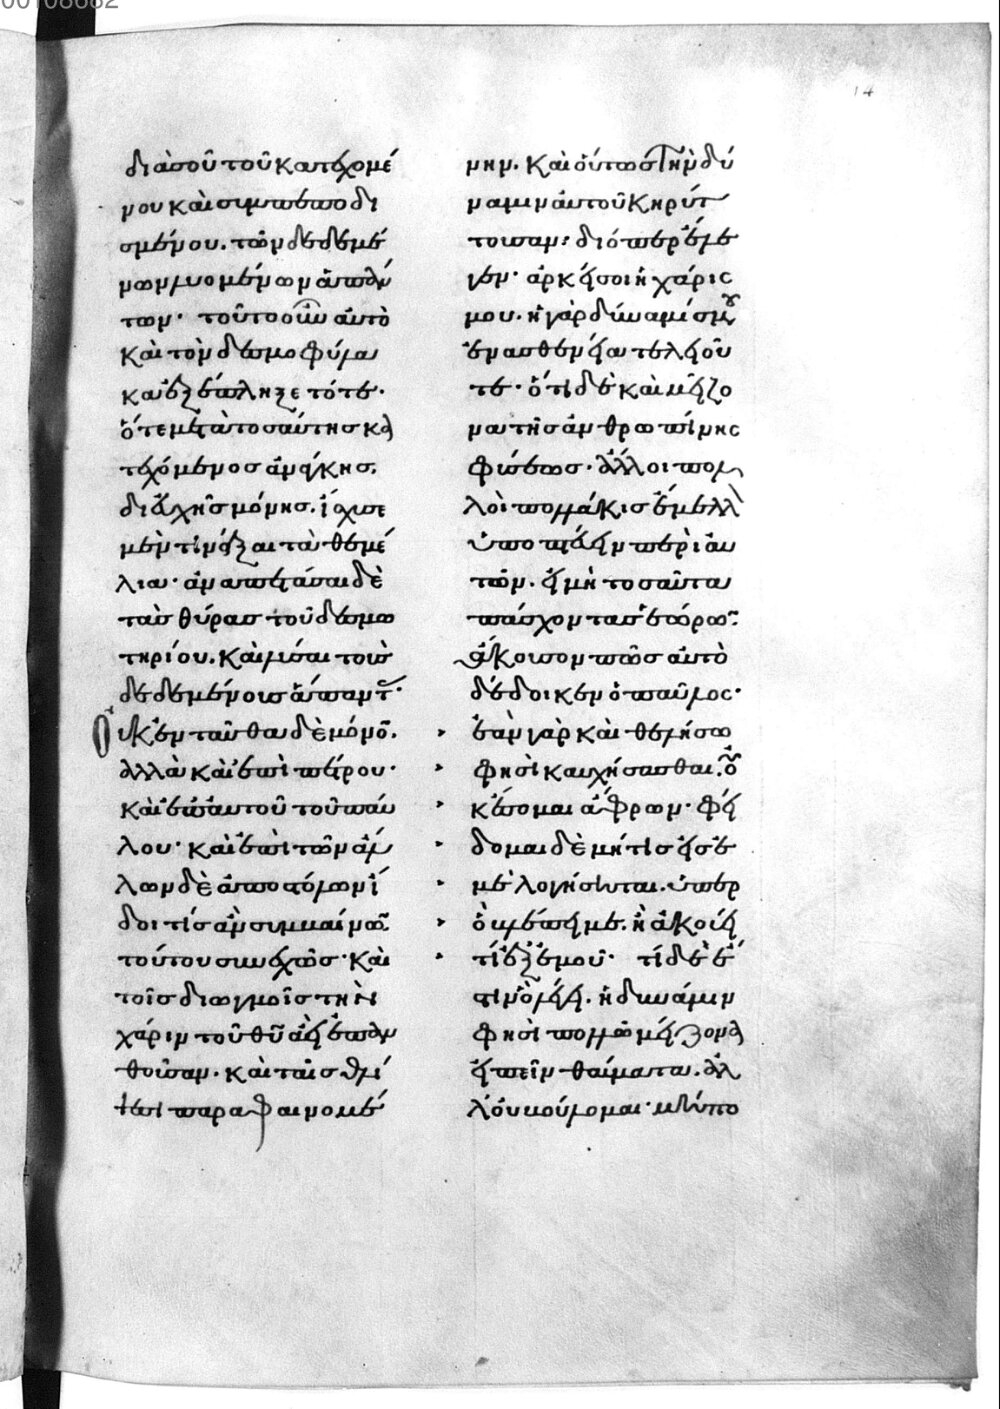 00108682
14
διὰ σοῦ τοῦ κατεχομέ
νου καὶ συμπεποδι
σμένου. τῶν δεδεμέ
νων λυομένων ἁπάν
των· τοῦτο οὖν αὐτὸ
καὶ τὸν δεσμοφύλα
κα ἐξέπληξε τότε·
ὅτε μετὰ τοσαύτης κα
τεχόμενος ἀνάγκης,
δι' εὐχῆς μόνης, ἴσχυσε
μὲν τινάξαι τὰ θεμέ
λια· ἀναπετάσαι δὲ
τὰς θύρας τοῦ δεσμω
τηρίου. καὶ λῦσαι τοὺς
δεδεμένους ἅπαντ(ας)·
Οὐκ ἐνταῦθα δὲ μόνον.
ἀλλὰ καὶ ἐπὶ πέτρου·
καὶ ἐπ' αὐτοῦ τοῦ παύ
λου· καὶ ἐπὶ τῶν ἄλ
λων δὲ ἀποστόλων ἴ
δοι τίς ἂν συμβαίνον
τοῦτο συνεχῶς· καὶ
τοῖς διωγμοῖς τὴν
χάριν τοῦ θῦ ἀεὶ ἐπαν
θοῦσαν. καὶ ταῖς θλί
ψεσι παραφαινομέ
νην. καὶ οὕτως τὴν δύ
ναμιν αὐτοῦ κηρύτ
τουσαν: διόπερ ἔλε
γεν· ἀρκεῖ σοι ἡ χάρις
μου. ἡ γὰρ δύναμίς μου
ἐν ἀσθενείᾳ τελειοῦ
ται· ὅτι δὲ καὶ μείζο
να τῆς ἀνθρωπίνης
φύσεως· ἄλλοι πολ
λοὶ πολλάκις ἔμελλ
ὑποπτεύειν περὶ αυ
τῶν. εἰ μὴ τοσαῦτα
πάσχοντας ἑώρων·
ἄκουσον πῶς αὐτὸ
δέδοικεν ὁ παῦλος·
ἐὰν γὰρ καὶ θελήσω
φησὶ καυχήσασθαι. οὐ
κ ἔσομαι ἄφρων· φεί
δομαι δὲ μή τις εἰς ἐ
μὲ λογίσηται. ὑπὲρ
ὃ βλέπει με. ἢ ἀκούει
τί ἐξ ἐμοῦ· τί δέ ἐ
στιν ὃ λέγει. ἠδυνάμην
φησὶ πολλῷ μείζονα
εἰπεῖν θαύματα. ἀλ
λ' οὐ βούλομαι· μήποτε